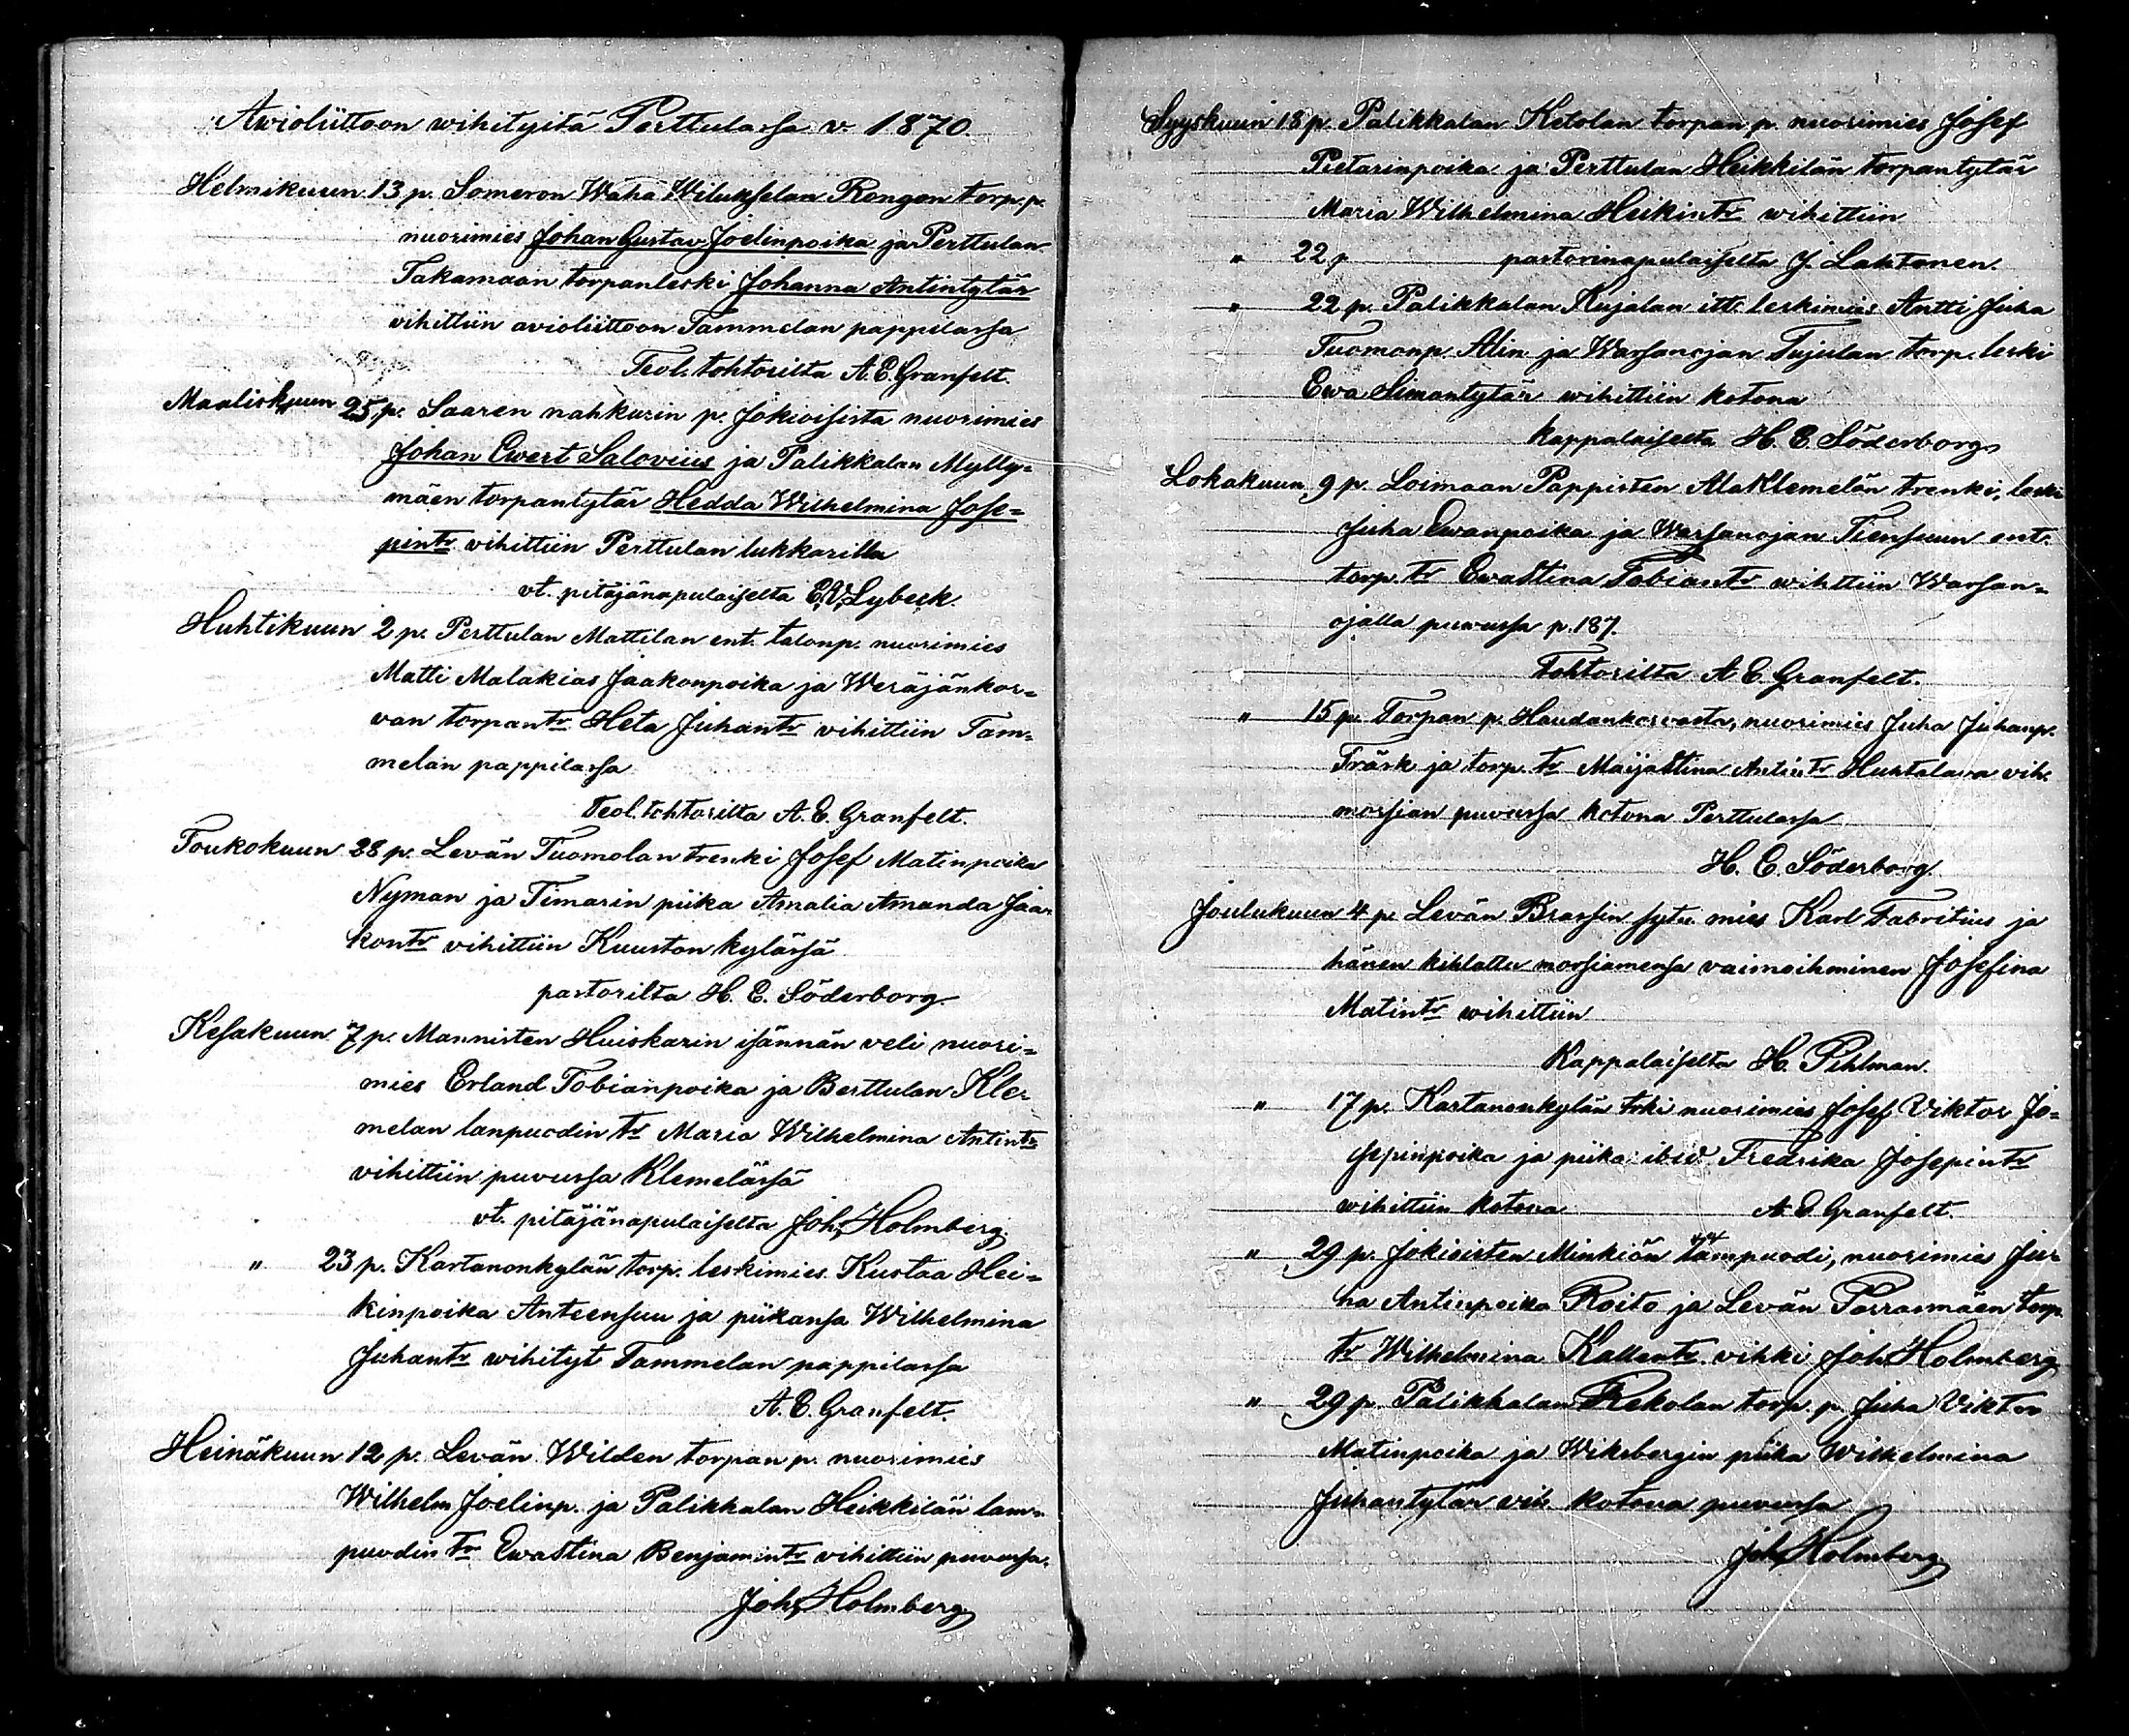 Avioliittoon wihityitä Perttulassa v. 1870.
Helmikuun 13 p. Someron Waha Wilukselan Rongon torp. p.
nuorimies Johan Gustav Joelinpoika ja Perttulan
Takamaan torpanleski Johanna Antintytär
vihittiin avioliittoon Tammelan pappilassa
Teol. tohtorilta A. E. Granfelt.
Maaliskuun 25 p. Saaren nahkurin p. Jokioisista nuorimies
Johan Ewert Salovius ja Palikkalan Mylly=
mäen torpantytär Hedda Wilhelmina Jose=
pintr vihittiin Perttulan lukkarilla
vt. pitäjänapulaiselta E. W. Lybeck.
Huhtikuun 2 p. Perttulan Mattilan ent. talonp. nuorimies
Matti Malakias Jaakonpoika ja Weräjänkor=
van torpantr Heta Juhantr vihittiin Tam=
melan pappilassa
Teol. tohtorilta A. E. Granfelt.
Toukokuun 28 p. Levän Tuomolan trenki Josef Matinpoika
Nyman ja Timarin piika Amalia Amanda Jaa=
kontr vihittiin Kuuston kylässä
pastorilta H. E. Söderborg.
Kesäkuun 7 p. Mannisten Huiskarin isännän veli nuori=
mies Erland Tobianpoika ja Berttulan Kle=
melan lanpuodin tr Maria Wilhelmina Antintr
vihittiin puvussa Klemelässä
vt. pitäjänapulaiselta Joh. Holmberg.
" 23 p. Kartanonkylän torp. leskimies Kustaa Hei=
kinpoika Anteensuu ja piikansa Wilhelmina
Juhantr wihityt Tammelan pappilassa
A. E. Granfelt.
Heinäkuun 12 p. Levän Wilden torpan p. nuorimies
Wilhelm Joelinp. ja Palikkalan Heikkilän lam=
puodin tr Ewastina Benjamintr vihittiin puvussa.
Joh. Holmberg
Syyskuun 18 p. Palikkalan Ketolan torpan p. nuorimies Josef
Pietarinpoika ja Perttulan Heikkilän torpantytär
Maria Wilhelmina Heikintr wihittiin
" 22 p pastorinapulaiselta J. Lahtonen.
" 22 p. Palikkalan Kujalan itt. leskimies Antti Juha
Tuomonp. Alin ja Warsanojan Tujulan torp. leski
Ewa Simontytär wihittiin kotona
kappalaiselta H. E. Söderborg
Lokakuun 9 p. Loimaan Pappisten AlaKlemelän trenki, leski
Juha Ewanpoika ja Warsanojan Tiensuun ent.
torp. tr Ewastina Tobiantr wihittiin Warsan=
ojalla puvussa p. 187.
Tohtorilta A E. Granfelt.
" 15 p. Torpan p. Haudankorvasta, nuorimies Juha Juhanp.
Träsk ja torp. tr Maijastina Antintr Huhtalasa vih.
morsian puvussa kotona Perttulassa
H. E. Söderborg.
Joulukuun 4 p. Levän Brassin sytn. mies Karl Fabritius ja
hänen kihlattu morsiamensa vaimoihminen Josefina
Matintr wihittiin
Kappalaiselta H. Pihlman.
" 17 p. Kartanonkylän trki nuorimies Josef Viktor Jo=
sepinpoika ja piika ibid. Fredrika Josepintr
wihittiin kotona A. E Granfelt.
" 29 p. Jokioisten Minkiön lampuodi, nuorimies Ju=
ha Antinpoika Roito ja Levän Porrasmäen torp.
tr Wilhelmina Kallentr. vihki Joh. Holmberg
" 29 p. Palikkalan Rekolan torp. p. Juha Viktor
Matinpoika ja Wiksbergin piika Wilhelmina
Juhantytär vih. kotona puvussa
Joh. Holmberg